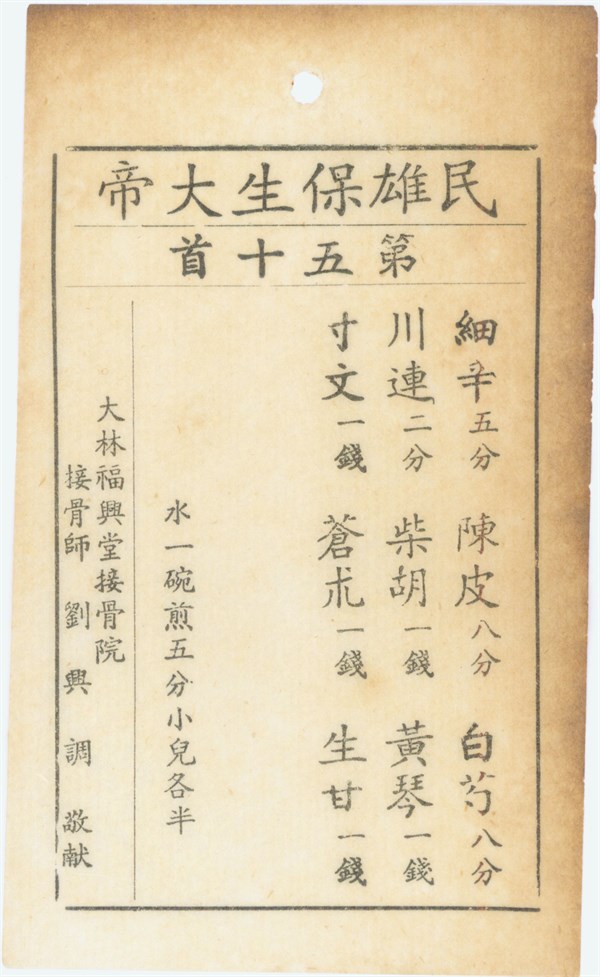 民雄保生大帝
第五十首
細辛五分 陳皮八分 白芍八分
川連二分 柴胡一錢 黃琴一錢
寸文一錢 蒼朮一錢 生甘一錢
水一碗煎五分小兒各半
大林福興堂接骨院
接骨師 劉興調 敬献